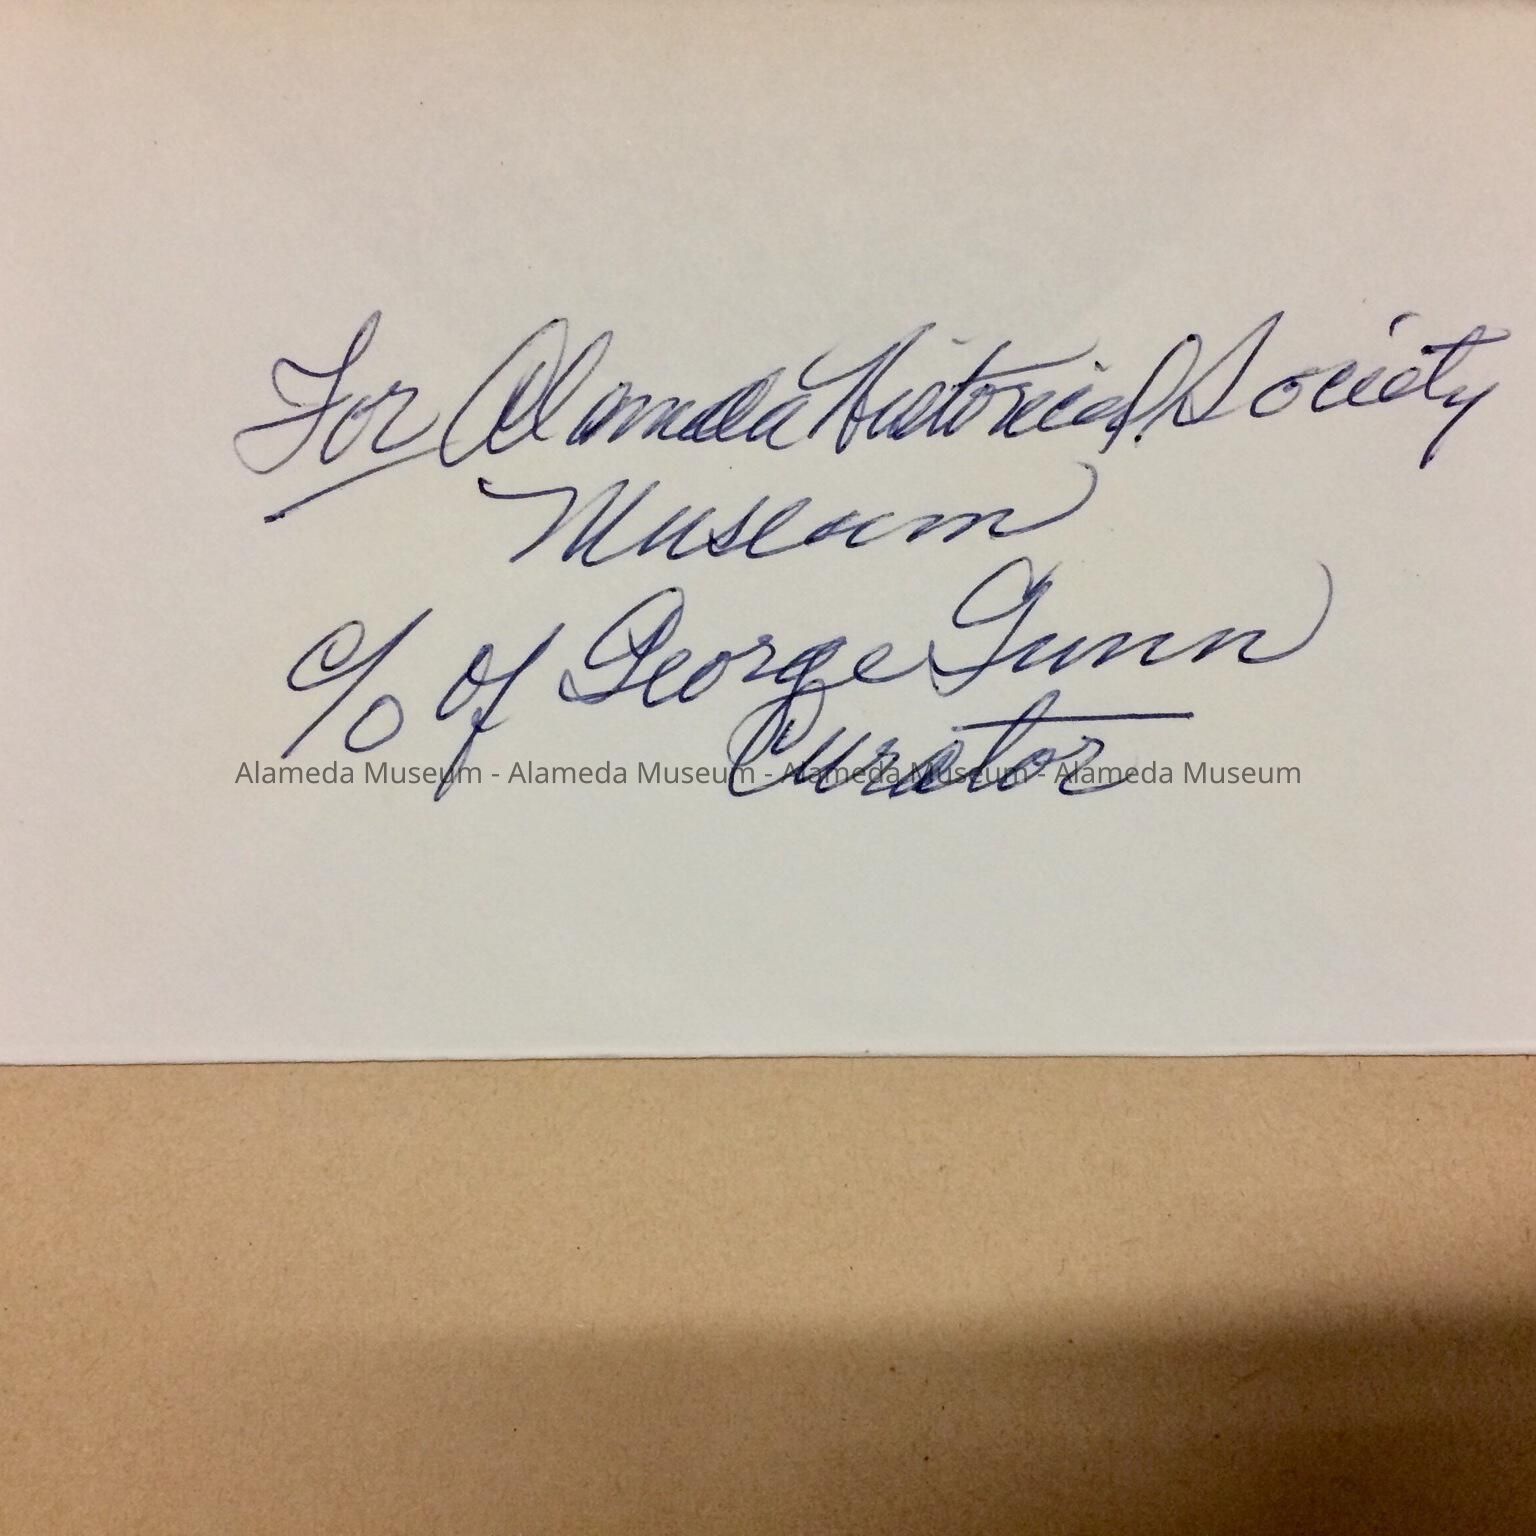 For Alameda Historical Society
Museum
c/o of George Gunn
Curator
Alameda Museum - Alameda Museum - Alameda Museum - Alameda Museum